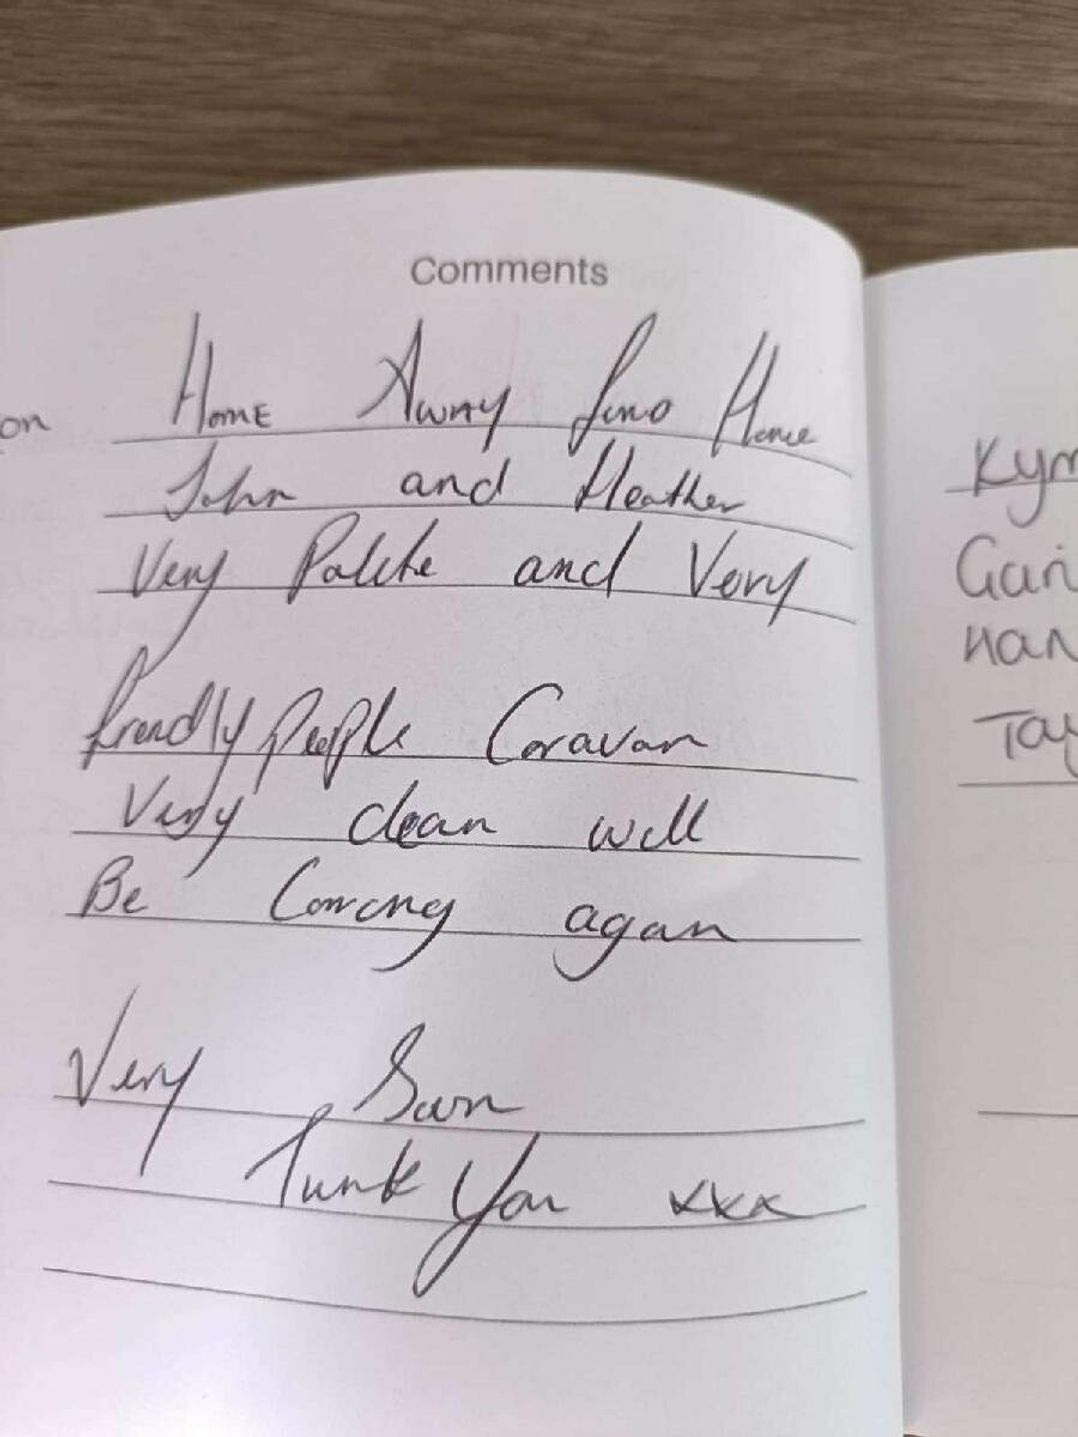 Comments
on
Home Away from Home
John and Heather
Very Polite and Very
frendly people Caravan
Very clean will
Be Coming again
Very Soon
Tank You xxx
Kym
Gari
Han
Tay